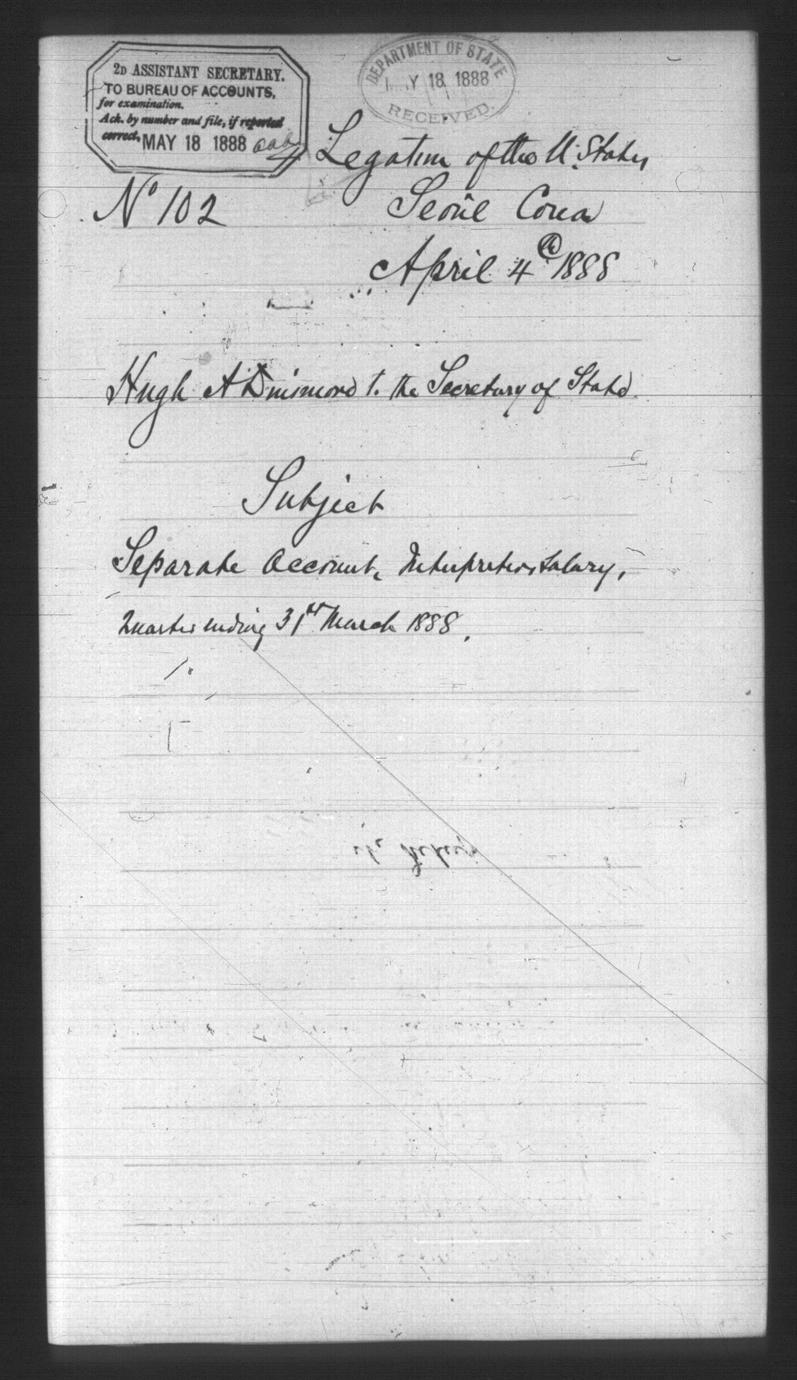 2D ASSISTANT SECRETARY.
TO BUREAU OF ACCOUNTS,
for examination.
Ack. by number and file, if reported
correct. MAY 18 1888
DEPARTMENT OF STATE
MAY 18 1888
RECEIVED.
Legation of the U. States
No 102
Seoul Corea
April 4th 1888
Hugh A Dinsmore to the Secretary of State
Subject
Separate Account, Interpreters Salary,
Quarter ending 31st March 1888.